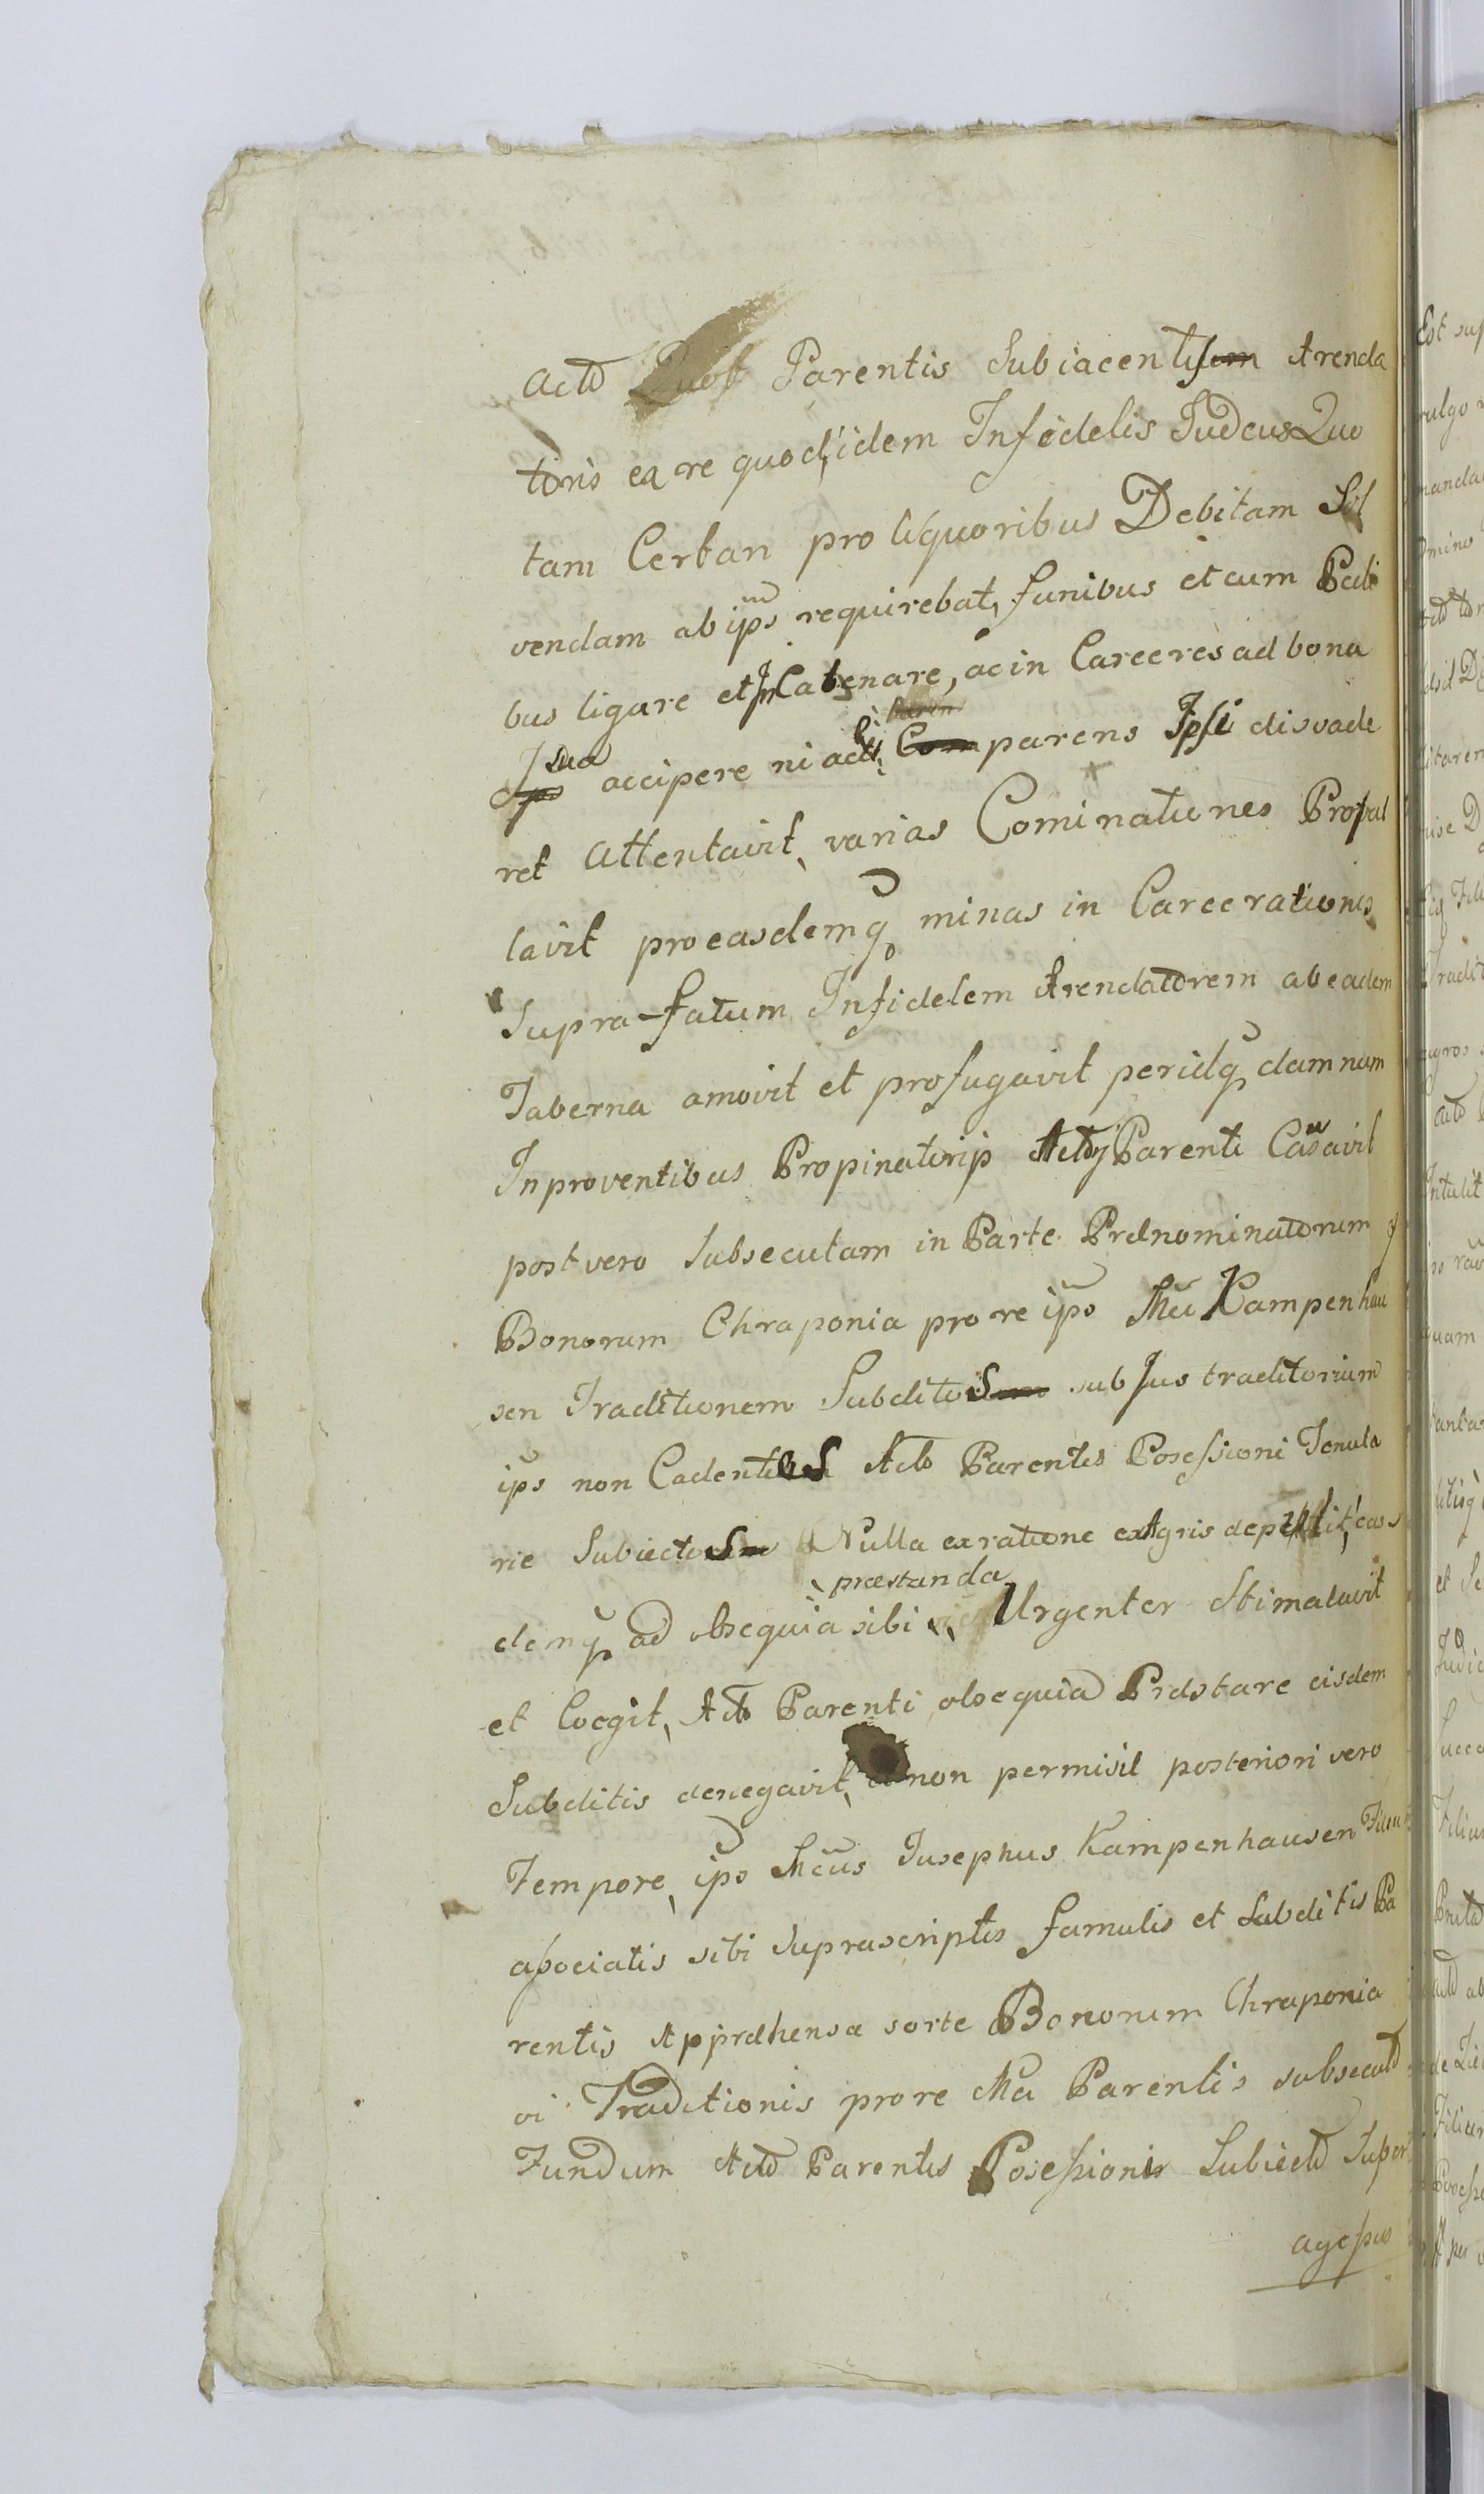 actæ Parentis Subiacentis Arenda
toris ea re quod, idem Infidelis Judæus Quo
tam Certan pro liquoribus Debitam Sol
vendam ab ips̃ requirebat, funibus et cum Pedi
bus ligare et In Catenare, ac in Carceres ad bona
Sua accipere ni acts, parens Ipsi disvade
ret Attentavit, varias Cominationes Propal
lavit pro easdemq minas in Carcerationis
Supra fatum Infidelem Arendatorem ab eadem
Taberna amovit et profugavit per idq damnum
In proventibus Propinatorijs Parenti Causavit
post vero Subsecutam in Parte Prænominatorum
Bonorum Chraponia pro re ips̃o Mci Kampenhau
sen Traditionem Subditos sub Jus traditorium
ips̃ non Cadentes Acts Parentis Possessioni Tenuta
rie Subiectos Nulla ex ratione ex Agris depellit, eos
demq ad obsequia sibi præstanda Urgenter Stimulavit
et Coegit, Acts Parenti obsequia Præstare eisdem
Subditis denegavit, non permisit posteriori vero
Tempore, ips̃o Mcus Josephus Kampenhausen Filius
associatis sibi suprascriptis famulis et Subditis Pa
rentis Appræhensa sorte Bonorum Chraponia
vi Traditionis pro re Mca Parentis subsecutæ
Fundum Actæ Parentis Posessionis Subiectæ Super
agessus